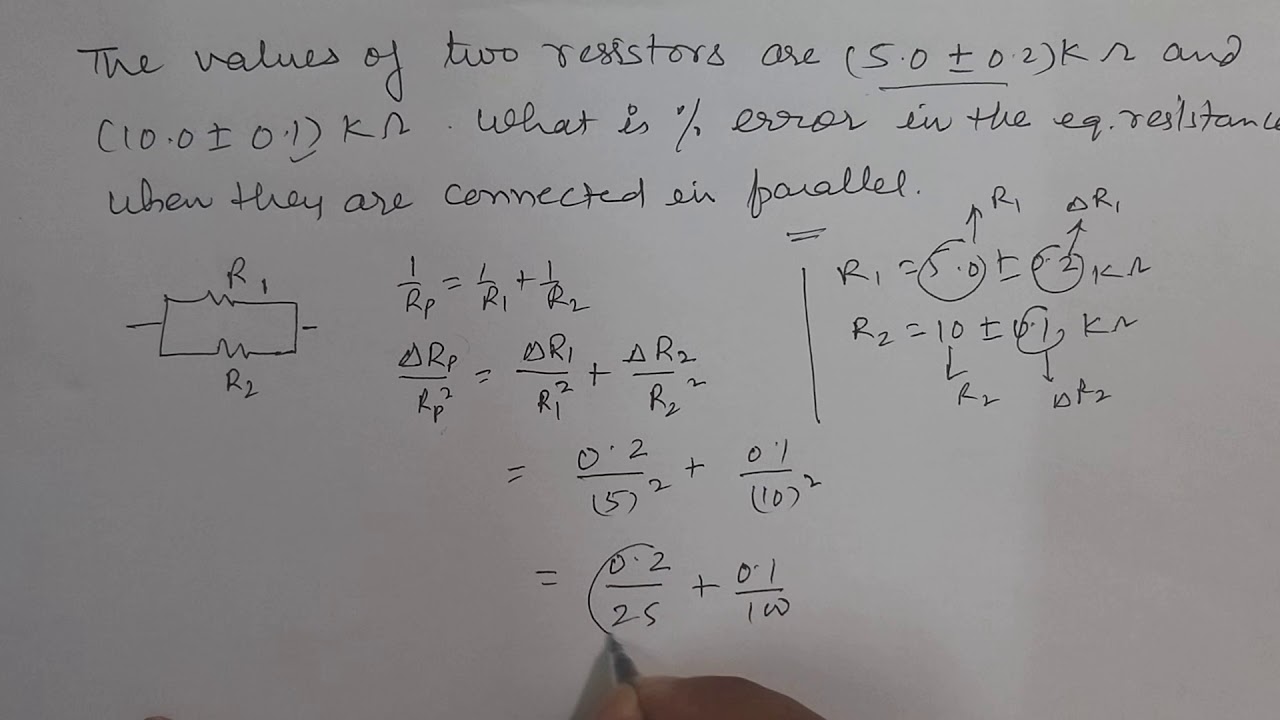 The values of two resistors are (5.0 ± 0.2)K Ω and
(10.0 ± 0.1) K Ω. What is % error in the eq. resistance
when they are connected in parallel.
R1
R2
1/Rp = 1/R1 + 1/R2
ΔRp/Rp² = ΔR1/R1² + ΔR2/R2²
= 0.2/(5)² + 0.1/(10)²
= 0.2/25 + 0.1/100
R1 ΔR1
R1 = 5.0 ± 0.2 KΩ
R2 = 10 ± 0.1, KΩ
R2 ΔR2